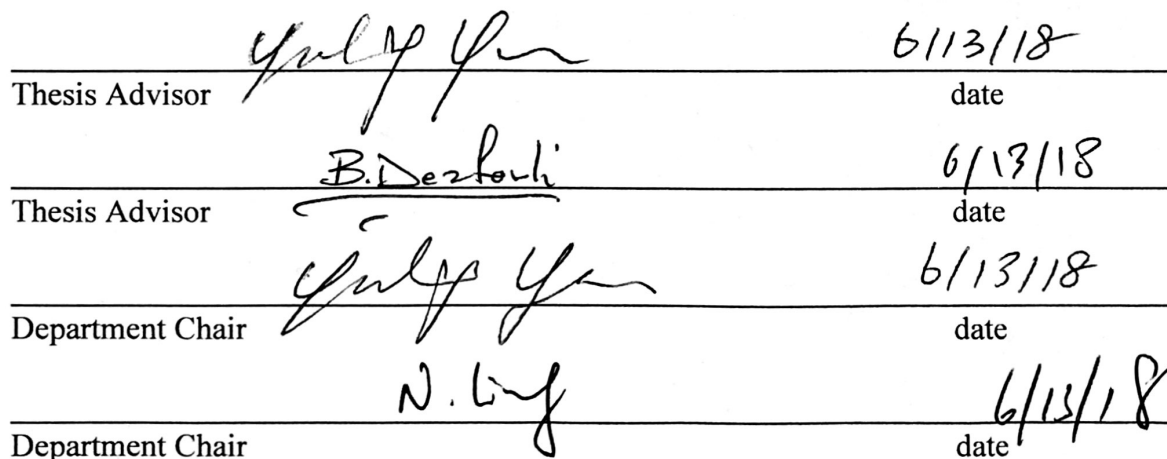 6/13/18
Thesis Advisor date
B. Dezfouli 6/13/18
Thesis Advisor date
6/13/18
Department Chair date
N. Ling 6/13/18
Department Chair date